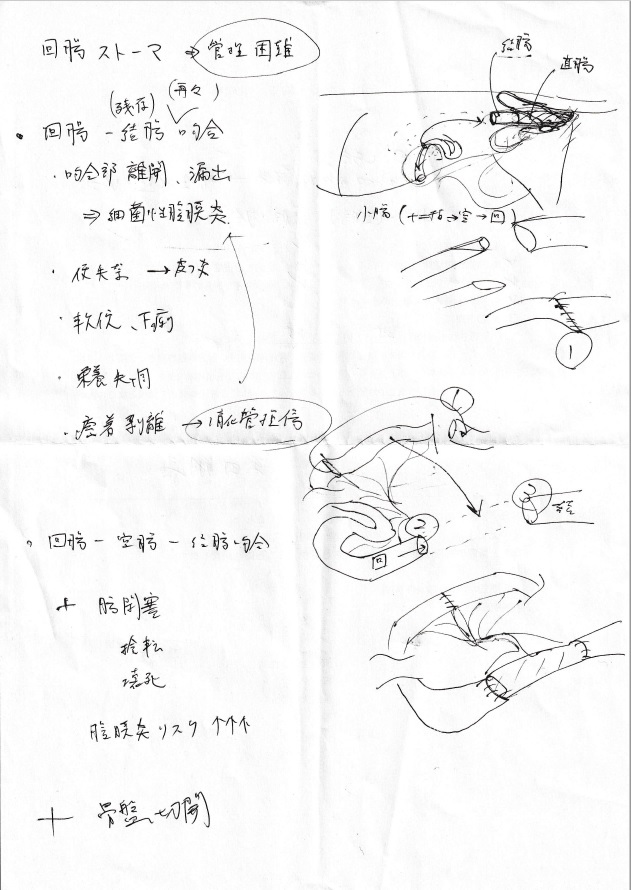 回腸 ストーマ → 管理困難
(残存) (再々)
・回腸 - 結腸 吻合
・吻合部 離開、漏出
⇒ 細菌性腹膜炎
・便失禁 → 皮フ炎
・軟便、下痢
・栄養失調
・癒着剥離 → 消化管損傷
・回腸 - 空腸 - 結腸吻合
+ 腸閉塞
捻転
壊死
腹膜炎リスク ↑↑↑
+ 骨盤切開
結腸
直腸
小腸 (十二指→空→回)
①
①
②
③
回
結